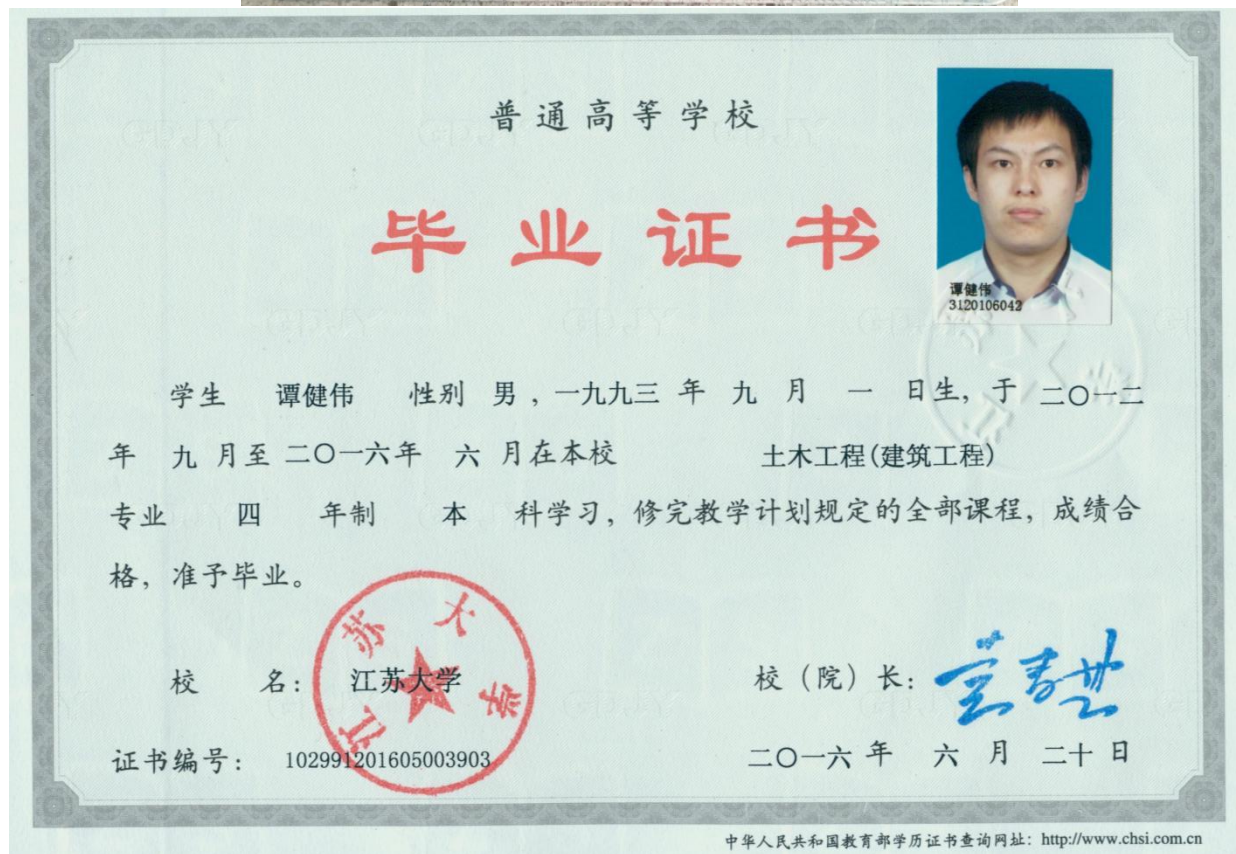 普通高等学校
毕业证书
谭健伟
3120106042
学生 谭健伟 性别 男，一九九三 年 九 月 一 日生，于 二〇一二
年 九 月至 二〇一六年 六 月在本校 土木工程(建筑工程)
专业 四 年制 本 科学习，修完教学计划规定的全部课程，成绩合
格，准予毕业。
江苏大学
校 名： 江苏大学 校（院）长：
证书编号： 102991201605003903 二〇一六 年 六 月 二十 日
中华人民共和国教育部学历证书查询网址：http://www.chsi.com.cn